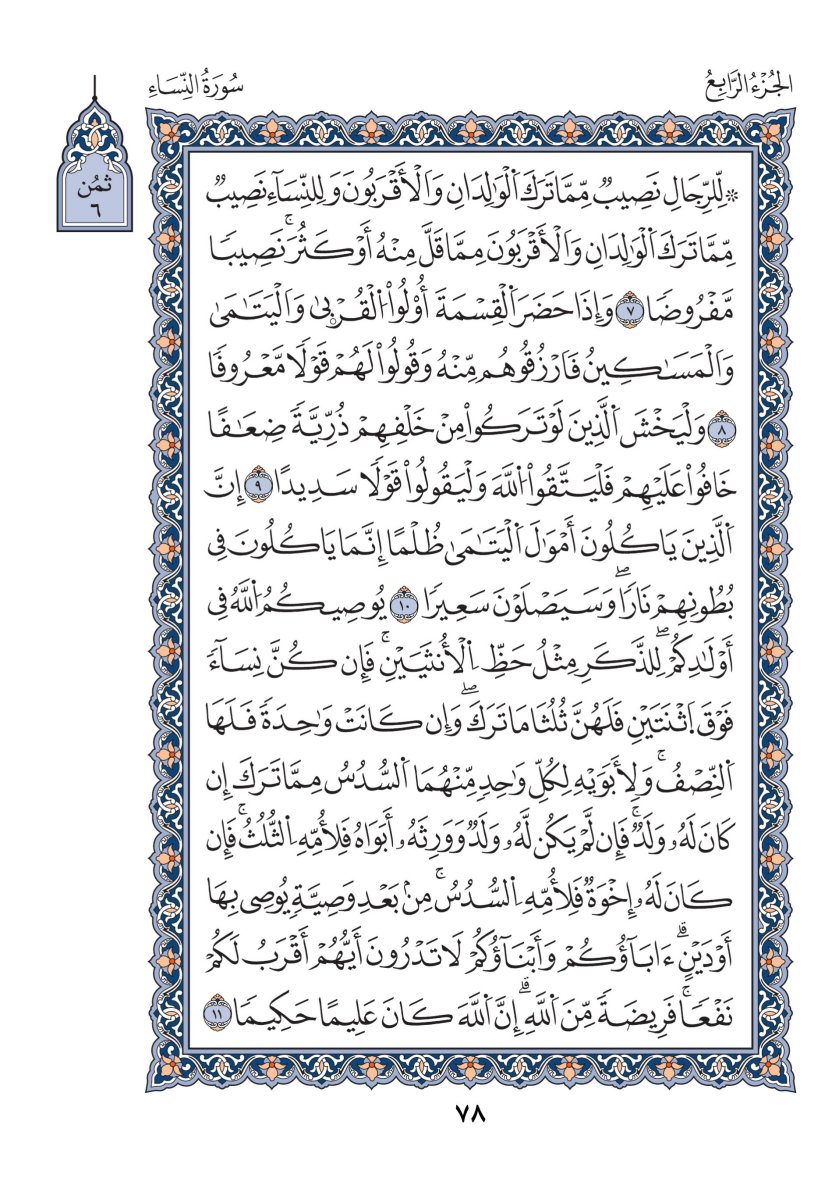 الجُزْءُ الرَّابِعُ
سُورَةُ النِّسَاءِ
ثُمُن
٦
۞ لِّلرِّجَالِ نَصِيبٌ مِّمَّا تَرَكَ ٱلْوَٰلِدَانِ وَٱلْأَقْرَبُونَ وَلِلنِّسَآءِ نَصِيبٌ
مِّمَّا تَرَكَ ٱلْوَٰلِدَانِ وَٱلْأَقْرَبُونَ مِمَّا قَلَّ مِنْهُ أَوْ كَثُرَۚ نَصِيبًا
مَّفْرُوضًا ٧ وَإِذَا حَضَرَ ٱلْقِسْمَةَ أُو۟لُوا۟ ٱلْقُرْبَىٰ وَٱلْيَتَٰمَىٰ
وَٱلْمَسَٰكِينُ فَٱرْزُقُوهُم مِّنْهُ وَقُولُوا۟ لَهُمْ قَوْلًا مَّعْرُوفًا
٨ وَلْيَخْشَ ٱلَّذِينَ لَوْ تَرَكُوا۟ مِنْ خَلْفِهِمْ ذُرِّيَّةً ضِعَٰفًا
خَافُوا۟ عَلَيْهِمْ فَلْيَتَّقُوا۟ ٱللَّهَ وَلْيَقُولُوا۟ قَوْلًا سَدِيدًا ٩ إِنَّ
ٱلَّذِينَ يَاكُلُونَ أَمْوَٰلَ ٱلْيَتَٰمَىٰ ظُلْمًا إِنَّمَا يَاكُلُونَ فِى
بُطُونِهِمْ نَارًاۖ وَسَيَصْلَوْنَ سَعِيرًا ١٠ يُوصِيكُمُ ٱللَّهُ فِى
أَوْلَٰدِكُمْۖ لِلذَّكَرِ مِثْلُ حَظِّ ٱلْأُنثَيَيْنِۚ فَإِن كُنَّ نِسَآءً
فَوْقَ ٱثْنَتَيْنِ فَلَهُنَّ ثُلُثَا مَا تَرَكَۖ وَإِن كَانَتْ وَٰحِدَةً فَلَهَا
ٱلنِّصْفُۚ وَلِأَبَوَيْهِ لِكُلِّ وَٰحِدٍ مِّنْهُمَا ٱلسُّدُسُ مِمَّا تَرَكَ إِن
كَانَ لَهُۥ وَلَدٌۚ فَإِن لَّمْ يَكُن لَّهُۥ وَلَدٌ وَوَرِثَهُۥ أَبَوَاهُ فَلِأُمِّهِ ٱلثُّلُثُۚ فَإِن
كَانَ لَهُۥ إِخْوَةٌ فَلِأُمِّهِ ٱلسُّدُسُۚ مِنۢ بَعْدِ وَصِيَّةٍ يُوصِى بِهَا
أَوْ دَيْنٍۗ ءَابَآؤُكُمْ وَأَبْنَآؤُكُمْ لَا تَدْرُونَ أَيُّهُمْ أَقْرَبُ لَكُمْ
نَفْعًاۚ فَرِيضَةً مِّنَ ٱللَّهِۗ إِنَّ ٱللَّهَ كَانَ عَلِيمًا حَكِيمًا ١١
٧٨